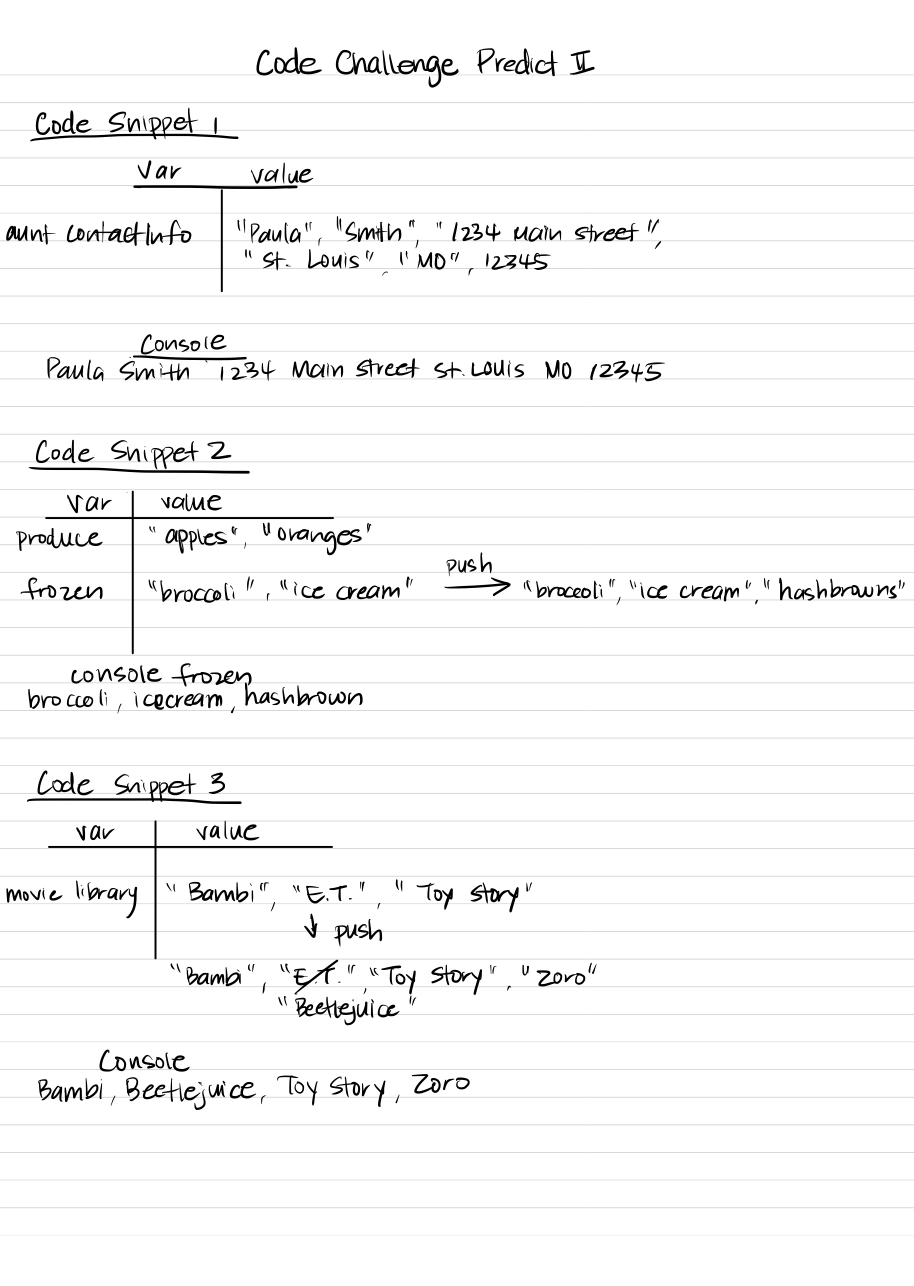 Code Challenge Predict II
Code Snippet 1
Var value
aunt contactInfo "Paula", "Smith", "1234 Main street",
"St. Louis", "MO", 12345
Console
Paula Smith 1234 Main Street St. Louis MO 12345
Code Snippet 2
Var value
produce "apples", "oranges"
push
frozen "broccoli", "ice cream" → "broccoli", "ice cream", "hashbrowns"
console frozen
broccoli, icecream, hashbrown
Code Snippet 3
var value
movie library "Bambi", "E.T.", "Toy story"
↓ push
"Bambi", "E.T.", "Toy Story", "Zoro"
"Beetlejuice"
Console
Bambi, Beetlejuice, Toy Story, Zoro